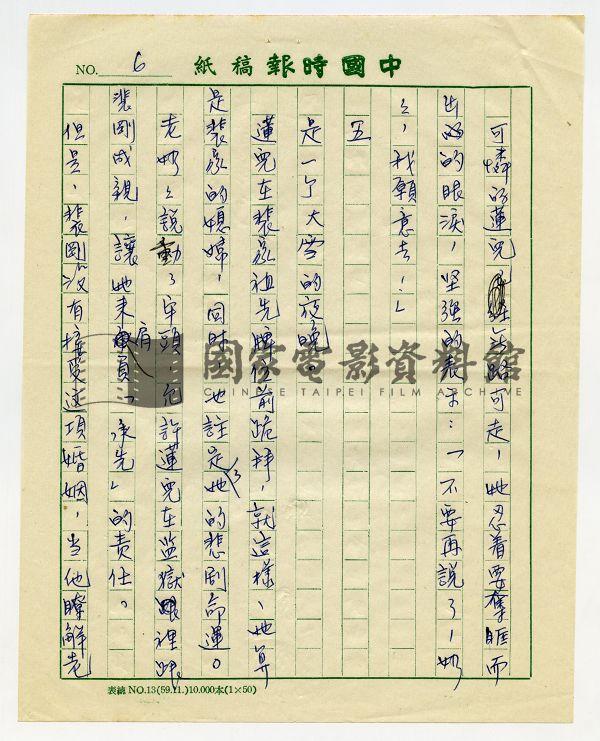 中國時報稿紙
NO. 6
可憐的蓮兒無路可走，她忍着要奪眶而
出的眼淚，坚强的表示：「不要再說了，奶
々，我願意去！」
五
是一个大雪的夜晚。
蓮兒在裴家祖先牌位前跪拜，就這樣，她算
是裴家的媳婦，同時，也註定了她的悲劇命運。
老奶々說動了牢頭，允許蓮兒在监獄裡跟
裴剛成親，讓她来肩負「承先」的責任。
但是，裴剛没有接受這項婚姻，当他瞭解老
國家電影資料館
CHINESE TAIPEI FILM ARCHIVE
表繞 NO.13(59.11.)10.000本(1×50)